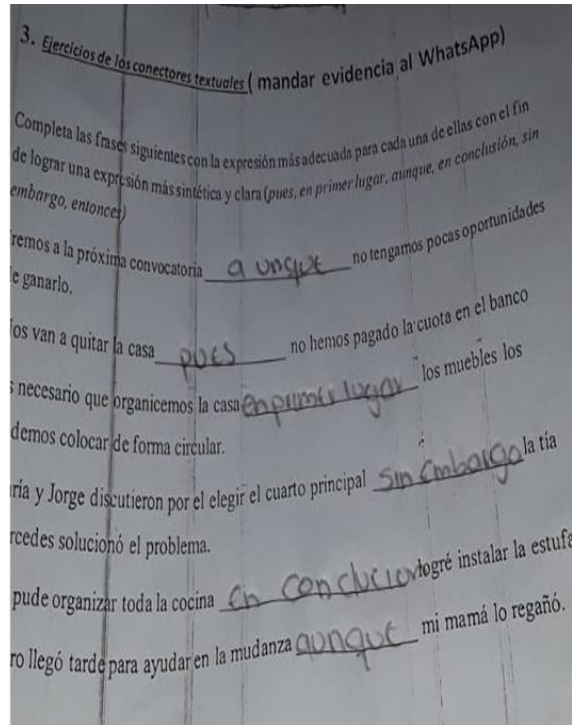 3. Ejercicios de los conectores textuales ( mandar evidencia al WhatsApp)
Completa las frases siguientes con la expresión más adecuada para cada una de ellas con el fin
de lograr una expresión más sintética y clara (pues, en primer lugar, aunque, en conclusión, sin
embargo, entonces)
remos a la próxima convocatoria aunque no tengamos pocas oportunidades
e ganarlo.
os van a quitar la casa pues no hemos pagado la cuota en el banco
s necesario que organicemos la casa en primer lugar los muebles los
demos colocar de forma circular.
ría y Jorge discutieron por el elegir el cuarto principal sin embargo la tía
rcedes solucionó el problema.
pude organizar toda la cocina en conclucion logré instalar la estufa
ro llegó tarde para ayudar en la mudanza aunque mi mamá lo regañó.